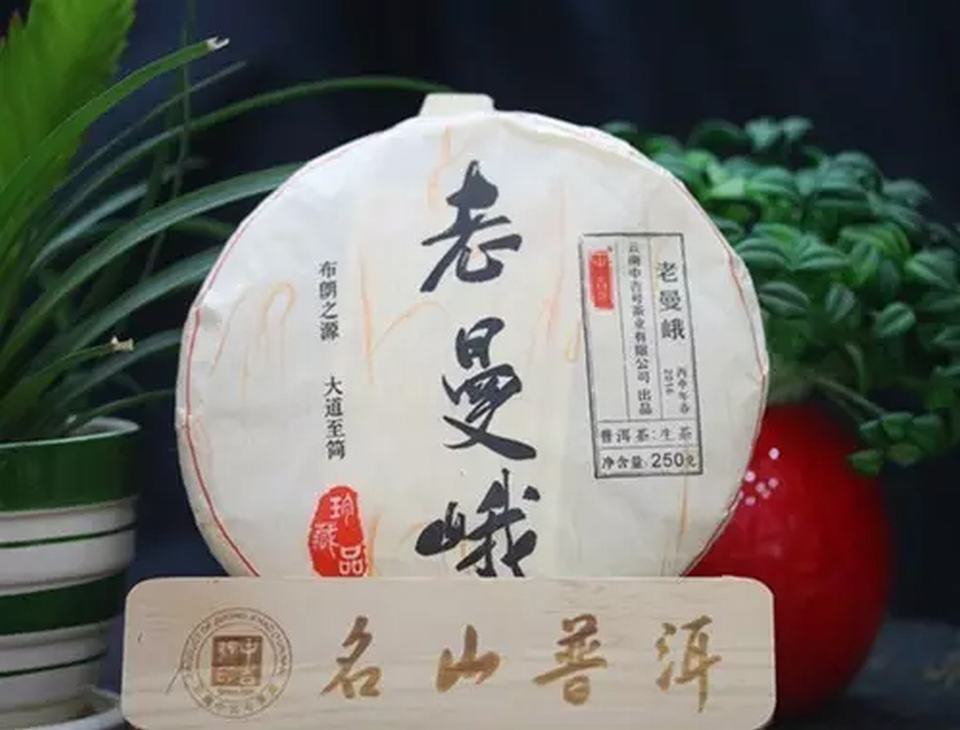 老曼峨
布朗之源 大道至简
珍藏品
老曼峨 丙申年春
2016
云南中吉号茶业有限公司 出品
中吉号
普洱茶:生茶
净含量:250克
名山普洱